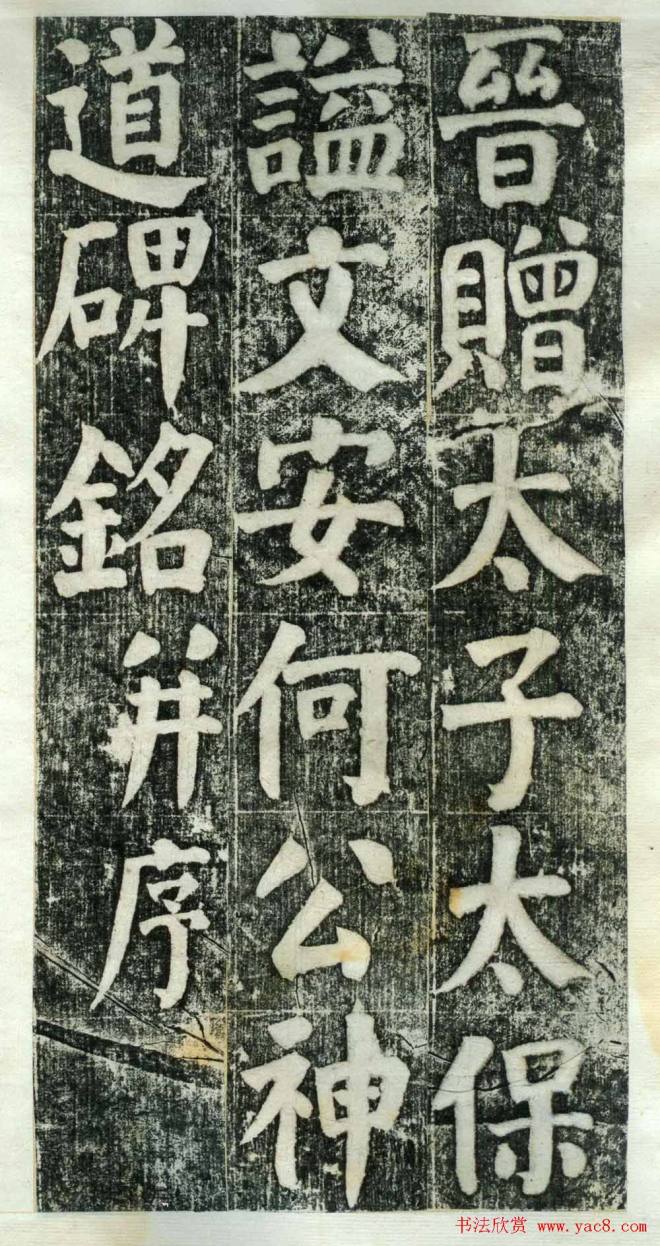 晉贈太子太保
諡文安何公神
道碑銘并序
书法欣赏 www.yac8.com